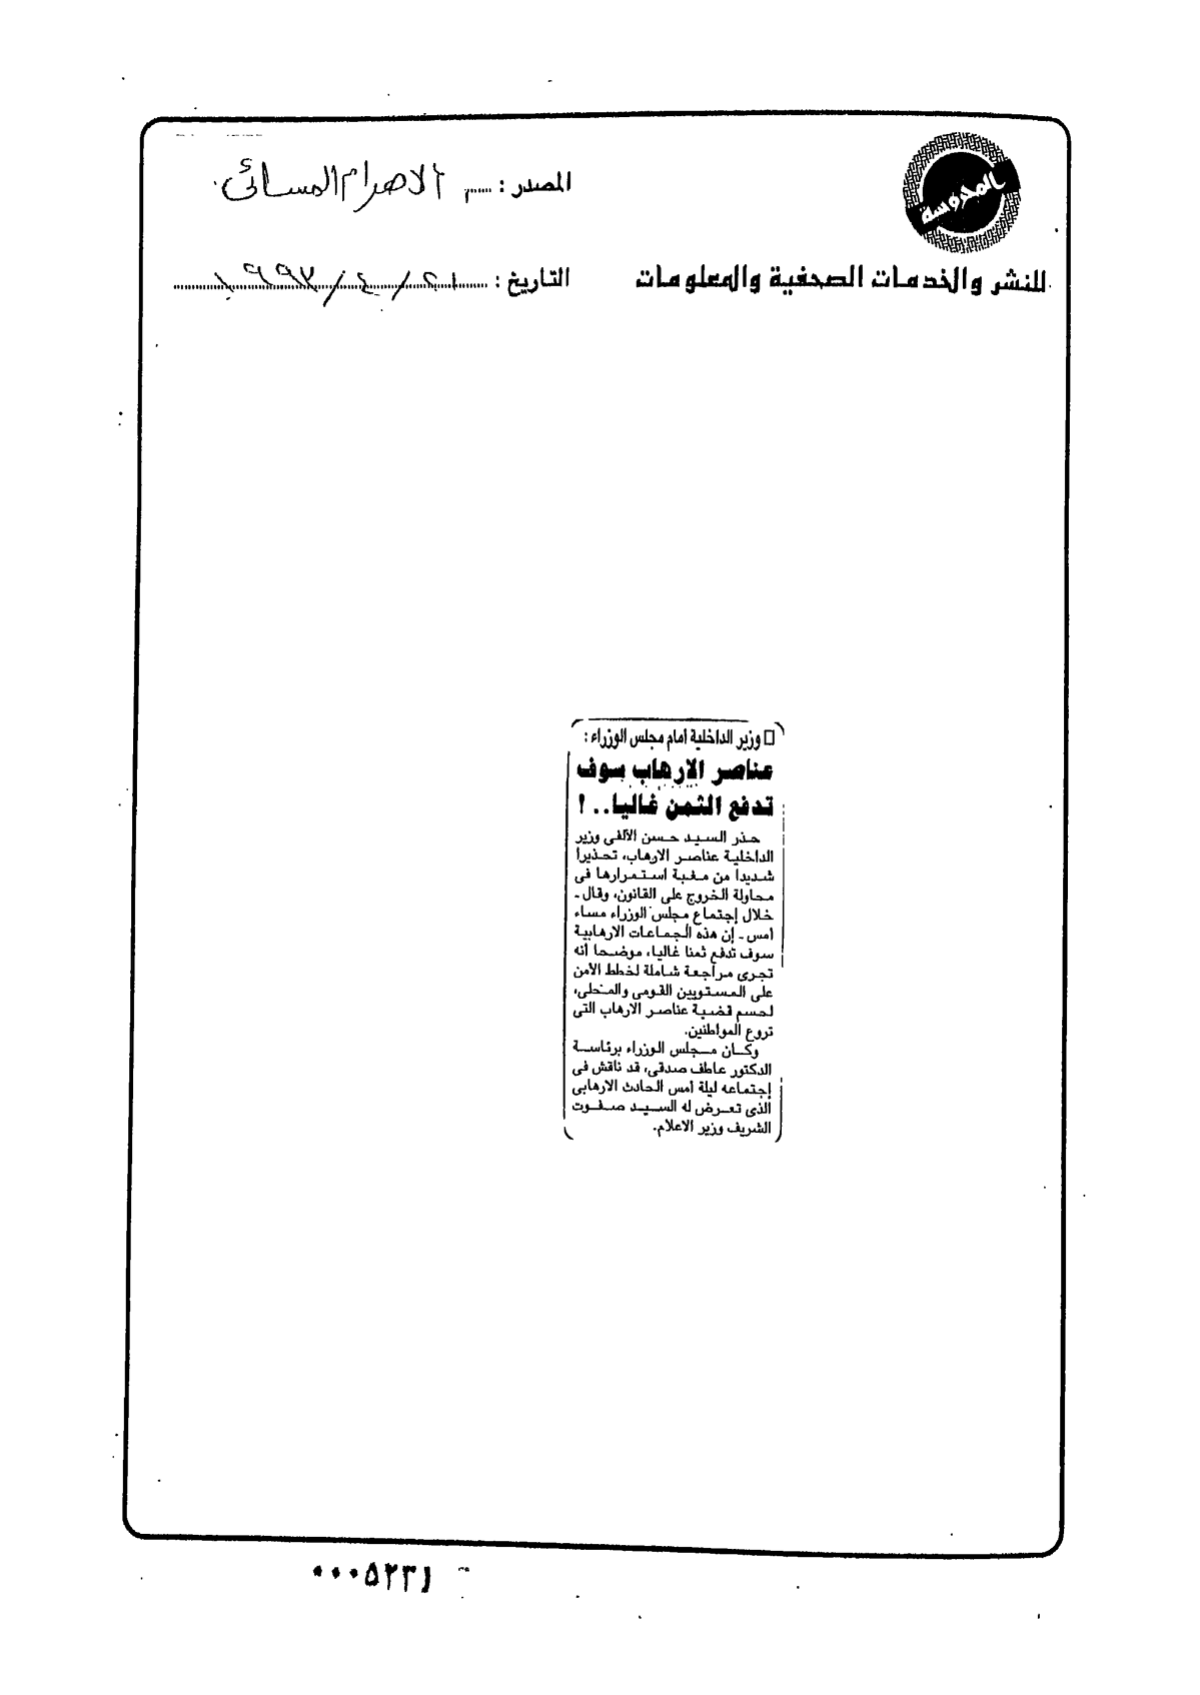 المحروسة
للنشر والخدمات الصحفية والمعلومات
المصدر : الاهرام المسائى
التاريخ : ٢١ / ٤ / ١٩٩٣
□ وزير الداخلية امام مجلس الوزراء :
عناصر الارهاب سوف
تدفع الثمن غاليا.. !
حذر السيد حسن الألفى وزير
الداخلية عناصر الارهاب، تحذيرا
شديدا من مغبة استمرارها فى
محاولة الخروج على القانون، وقال ـ
خلال إجتماع مجلس الوزراء مساء
أمس ـ إن هذه الجماعات الارهابية
سوف تدفع ثمنا غاليا، موضحا انه
تجرى مراجعة شاملة لخطط الأمن
على المستويين القومى والمحلى،
لحسم قضية عناصر الارهاب التى
تروع المواطنين.
وكان مجلس الوزراء برئاسة
الدكتور عاطف صدقى، قد ناقش فى
إجتماعه ليلة أمس الحادث الارهابى
الذى تعرض له السيد صفوت
الشريف وزير الاعلام.
٠٠٠٥٢٣١